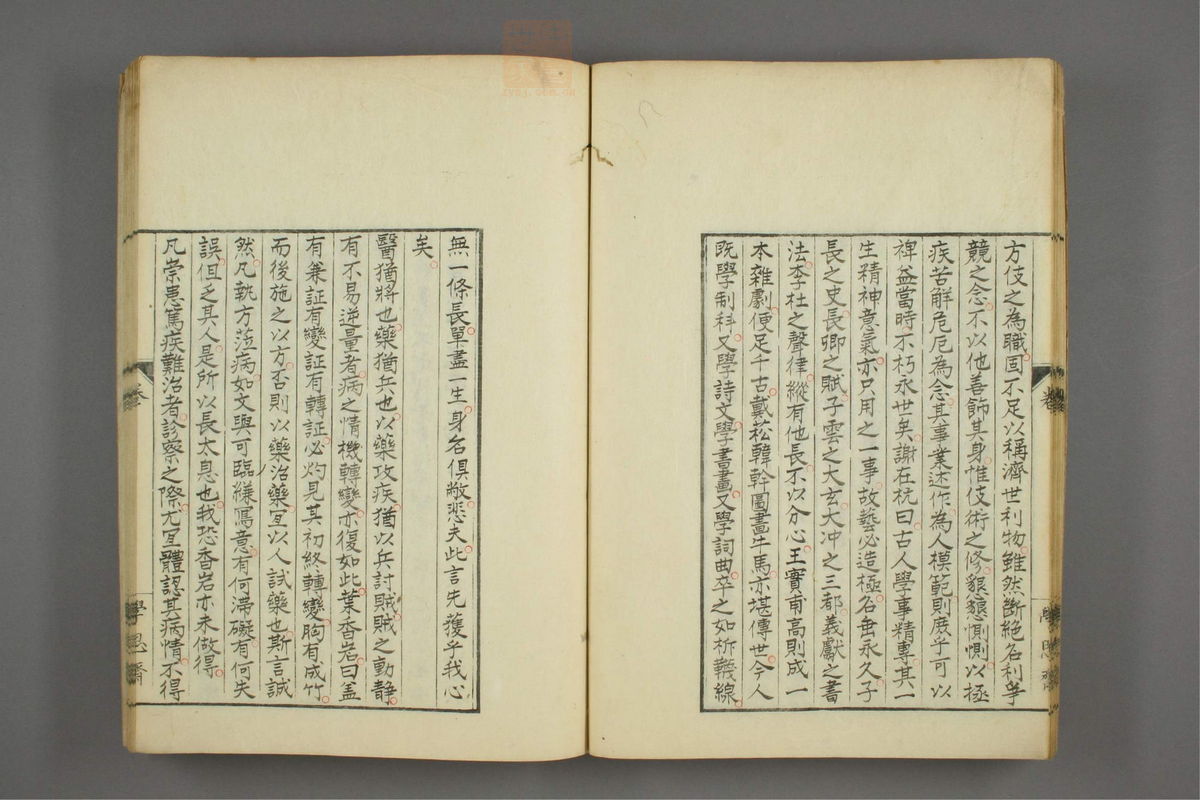 方伎之為職固不足以稱濟世利物雖然斷絕名利爭
競之念不以他善飾其身惟伎術之修懇懇惻惻以拯
疾苦解危厄為念其事業述作為人模範則庶乎可以
裨益當時不朽永世矣謝在杭曰古人學事精專其一
生精神意氣亦只用之一事故藝必造極名垂永久子
長之史長卿之賦子雲之太玄太冲之三都義獻之書
法李杜之聲律縱有他長不以分心王實甫高則成一
本雜劇便足千古戴菘韓幹圖畫牛馬亦堪傳世今人
既學制科又學詩文學書畫又學詞曲卒之如柝襪線
無一條長單盡一生身名俱敝悲夫此言先獲乎我心
矣
醫猶將也藥猶兵也以藥攻疾猶以兵討賊賊之動靜
有不易逆量者病之情機轉變亦復如此葉香岩曰盖
有兼証有變証有轉証必灼見其初終轉變胸有成竹
而後施之以方否則以藥治藥互以人試藥也斯言誠
然凡執方蒞病如文與可臨縑寫意有何滞礙有何失
誤但乏其人是所以長太息也我恐香岩亦未做得
凡崇患篤疾難治者診察之際尤宜體認其病情不得
卷
學思齋
卷
學思齋